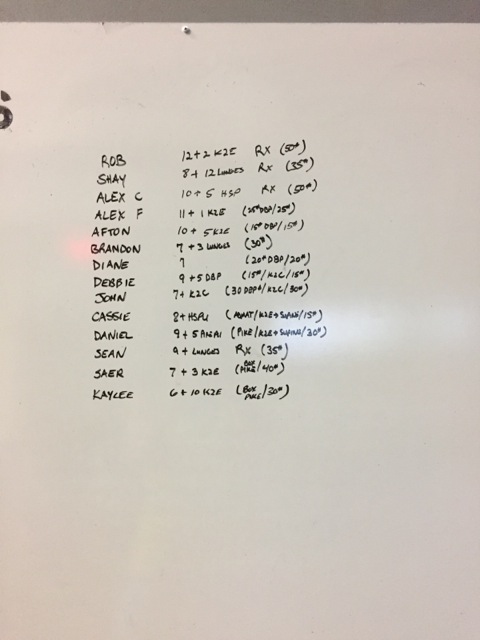 ROB 12+2 K2E RX (50#)
SHAY 8+12 LUNGES RX (35#)
ALEX C 10+5 HSP RX (50#)
ALEX F 11+1 K2E (25# DBP/25#)
AFTON 10+5 K2E (15# DBP/15#)
BRANDON 7+3 LUNGES (30#)
DIANE 7 (20# DBP/20#)
DEBBIE 9+5 DBP (15#/K2C/15#)
JOHN 7+K2C (30 DBP#/K2C/30#)
CASSIE 8+HSPU (ABMAT/K2E+ /15#)
DANIEL 9+5 (PIKE/K2E+ /30#)
SEAN 9+LUNGES RX (35#)
SAER 7+3 K2E (BOX PIKE/40#)
KAYLEE 6+10 K2E (BOX PIKE/30#)